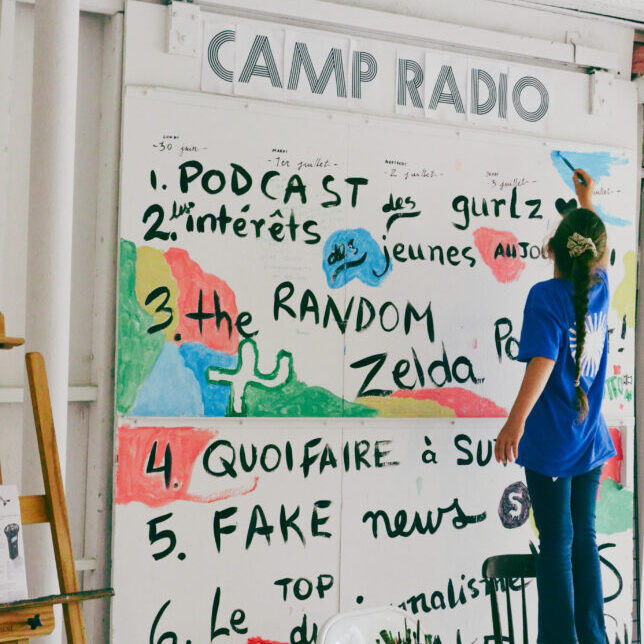 CAMP RADIO
LUNDI MARDI MERCREDI JEUDI
-30 juin- -1er juillet- -2 juillet- -3 juillet- juillet-
1. PODCAST des gurlz
2. les intérêts des jeunes AUJO
3. the RANDOM
Zelda
4. QUOIFAIRE à SU
5. FAKE news 5
TOP
6. Le du